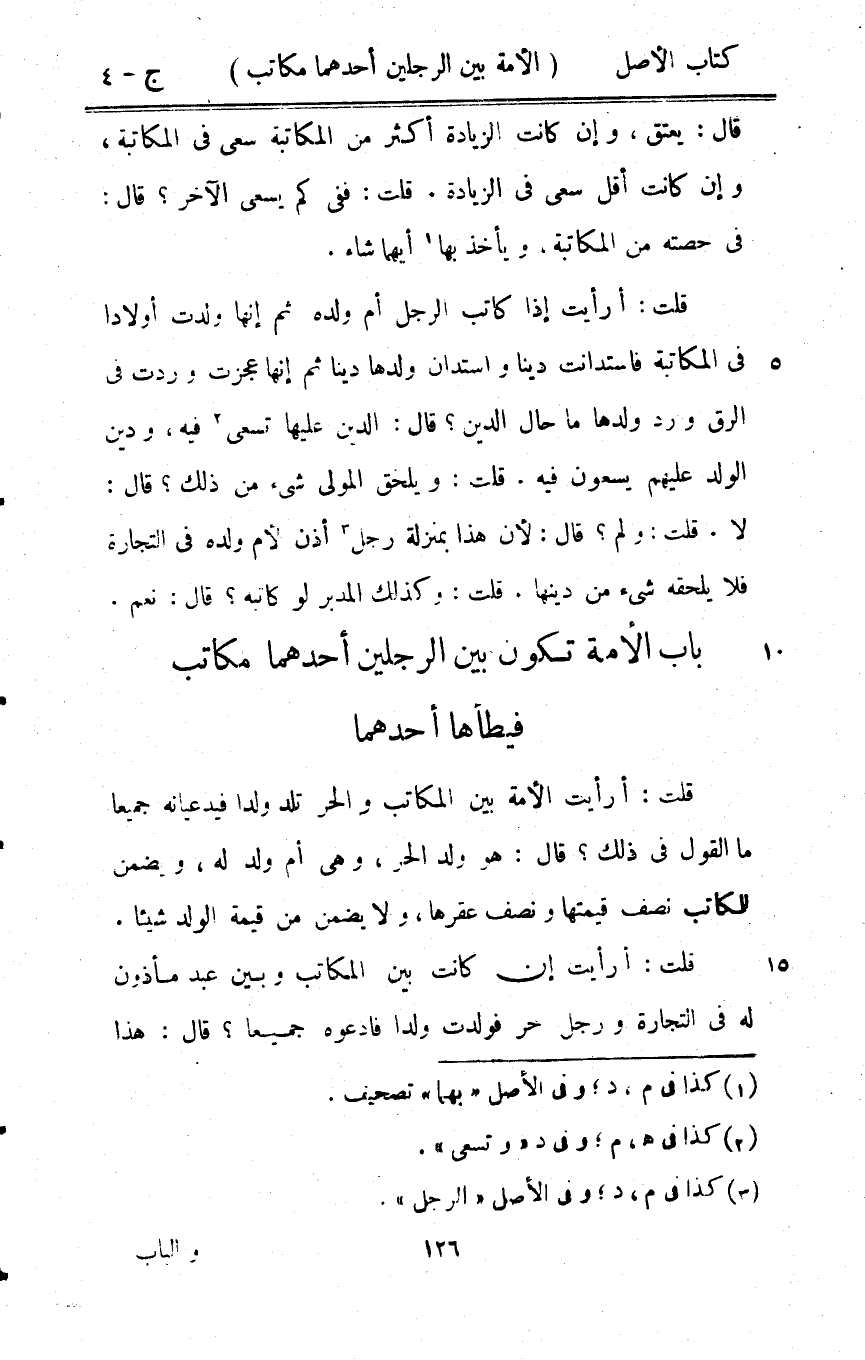 كتاب الأصل ( الأمة بين الرجلين أحدهما مكاتب ) ج - ٤
قال : يعتق ، و إن كانت الزيادة أكثر من المكاتبة سعى فى المكاتبة ،
و إن كانت أقل سعى فى الزيادة . قلت : ففى كم يسعى الآخر ؟ قال :
فى حصته من المكاتبة . و يأخذ بها١ أيهما شاء .
قلت : أ رأيت إذا كاتب الرجل أم ولده ثم إنها ولدت أولادا
٥ فى المكاتبة فاستدانت دينا و استدان ولدها دينا ثم إنها عجزت و ردت فى
الرق و رد ولدها ما حال الدين ؟ قال : الدين عليها تسعى٢ فيه ، و دين
الولد عليهم يسعون فيه . قلت : و يلحق المولى شىء من ذلك ؟ قال :
لا . قلت : و لم ؟ قال : لأن هذا بمنزلة رجل٣ أذن لأم ولده فى التجارة
فلا يلحقه شىء من دينها . قلت : و كذلك المدبر لو كاتبه ؟ قال : نعم .
١٠ باب الأمة تكون بين الرجلين أحدهما مكاتب
فيطأها أحدهما
قلت : أ رأيت الأمة بين المكاتب و الحر تلد ولدا فيدعيانه جميعا
ما القول فى ذلك ؟ قال : هو ولد الحر ، و هى أم ولد له ، و يضمن
للكاتب نصف قيمتها و نصف عقرها ، و لا يضمن من قيمة الولد شيئا .
١٥ قلت : أ رأيت إن كانت بين المكاتب و بين عبد مأذون
له فى التجارة و رجل حر فولدت ولدا فادعوه جميعا ؟ قال : هذا
(١) كذا فى م ، د ؛ و فى الأصل « بهما » تصحيف .
(٢) كذا فى ه ، م ؛ و فى د « و تسعى » .
(٣) كذا فى م ، د ؛ و فى الأصل « الرجل » .
١٢٦ و الباب